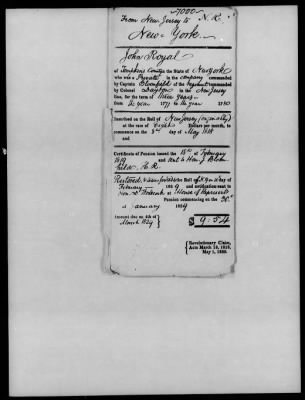 7000
From New Jersey to N.Y.
New-York.
John Royal
of Tompkins County in the State of New York
who was a Private in the company commanded
by Captain Bloomfield of the Regiment commanded
by Colonel Dayton in the New Jersey
line, for the term of three years
from the year 1777 to the year 1780
Inscribed on the Roll of New Jersey (originally)
at the rate of Eight Dollars per month, to
commence on the day of May 1818
Certificate of Pension issued the of February
1819 and sent to Hon. J. Bloom
field H.R.
Restored, Roll of N.Y. day of
February 1829 and notification sent to
Hon. House of Represent
Pension commencing on the
of January 1829
Amount due on 4th of
March 1829
$ 9.54
Revolutionary Claim,
Acts March 18, 1818,
May 1, 1820.